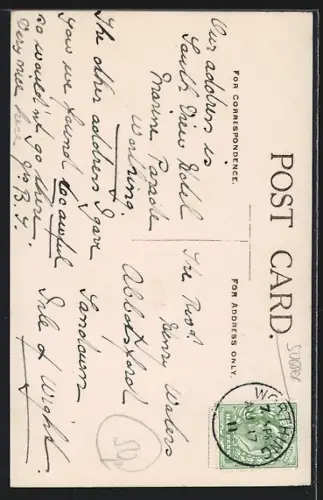 POST CARD.
FOR CORRESPONDENCE.
FOR ADDRESS ONLY.
Our address is
South View Hotel
Marine Parade
Worthing.
The other address I gave
you we found too awful
so would'nt go there.
Very nice here
The Revd.
Henry Waters
Abbotsford
Sandown
Isle of Wight
Sussex
WORTHING
11